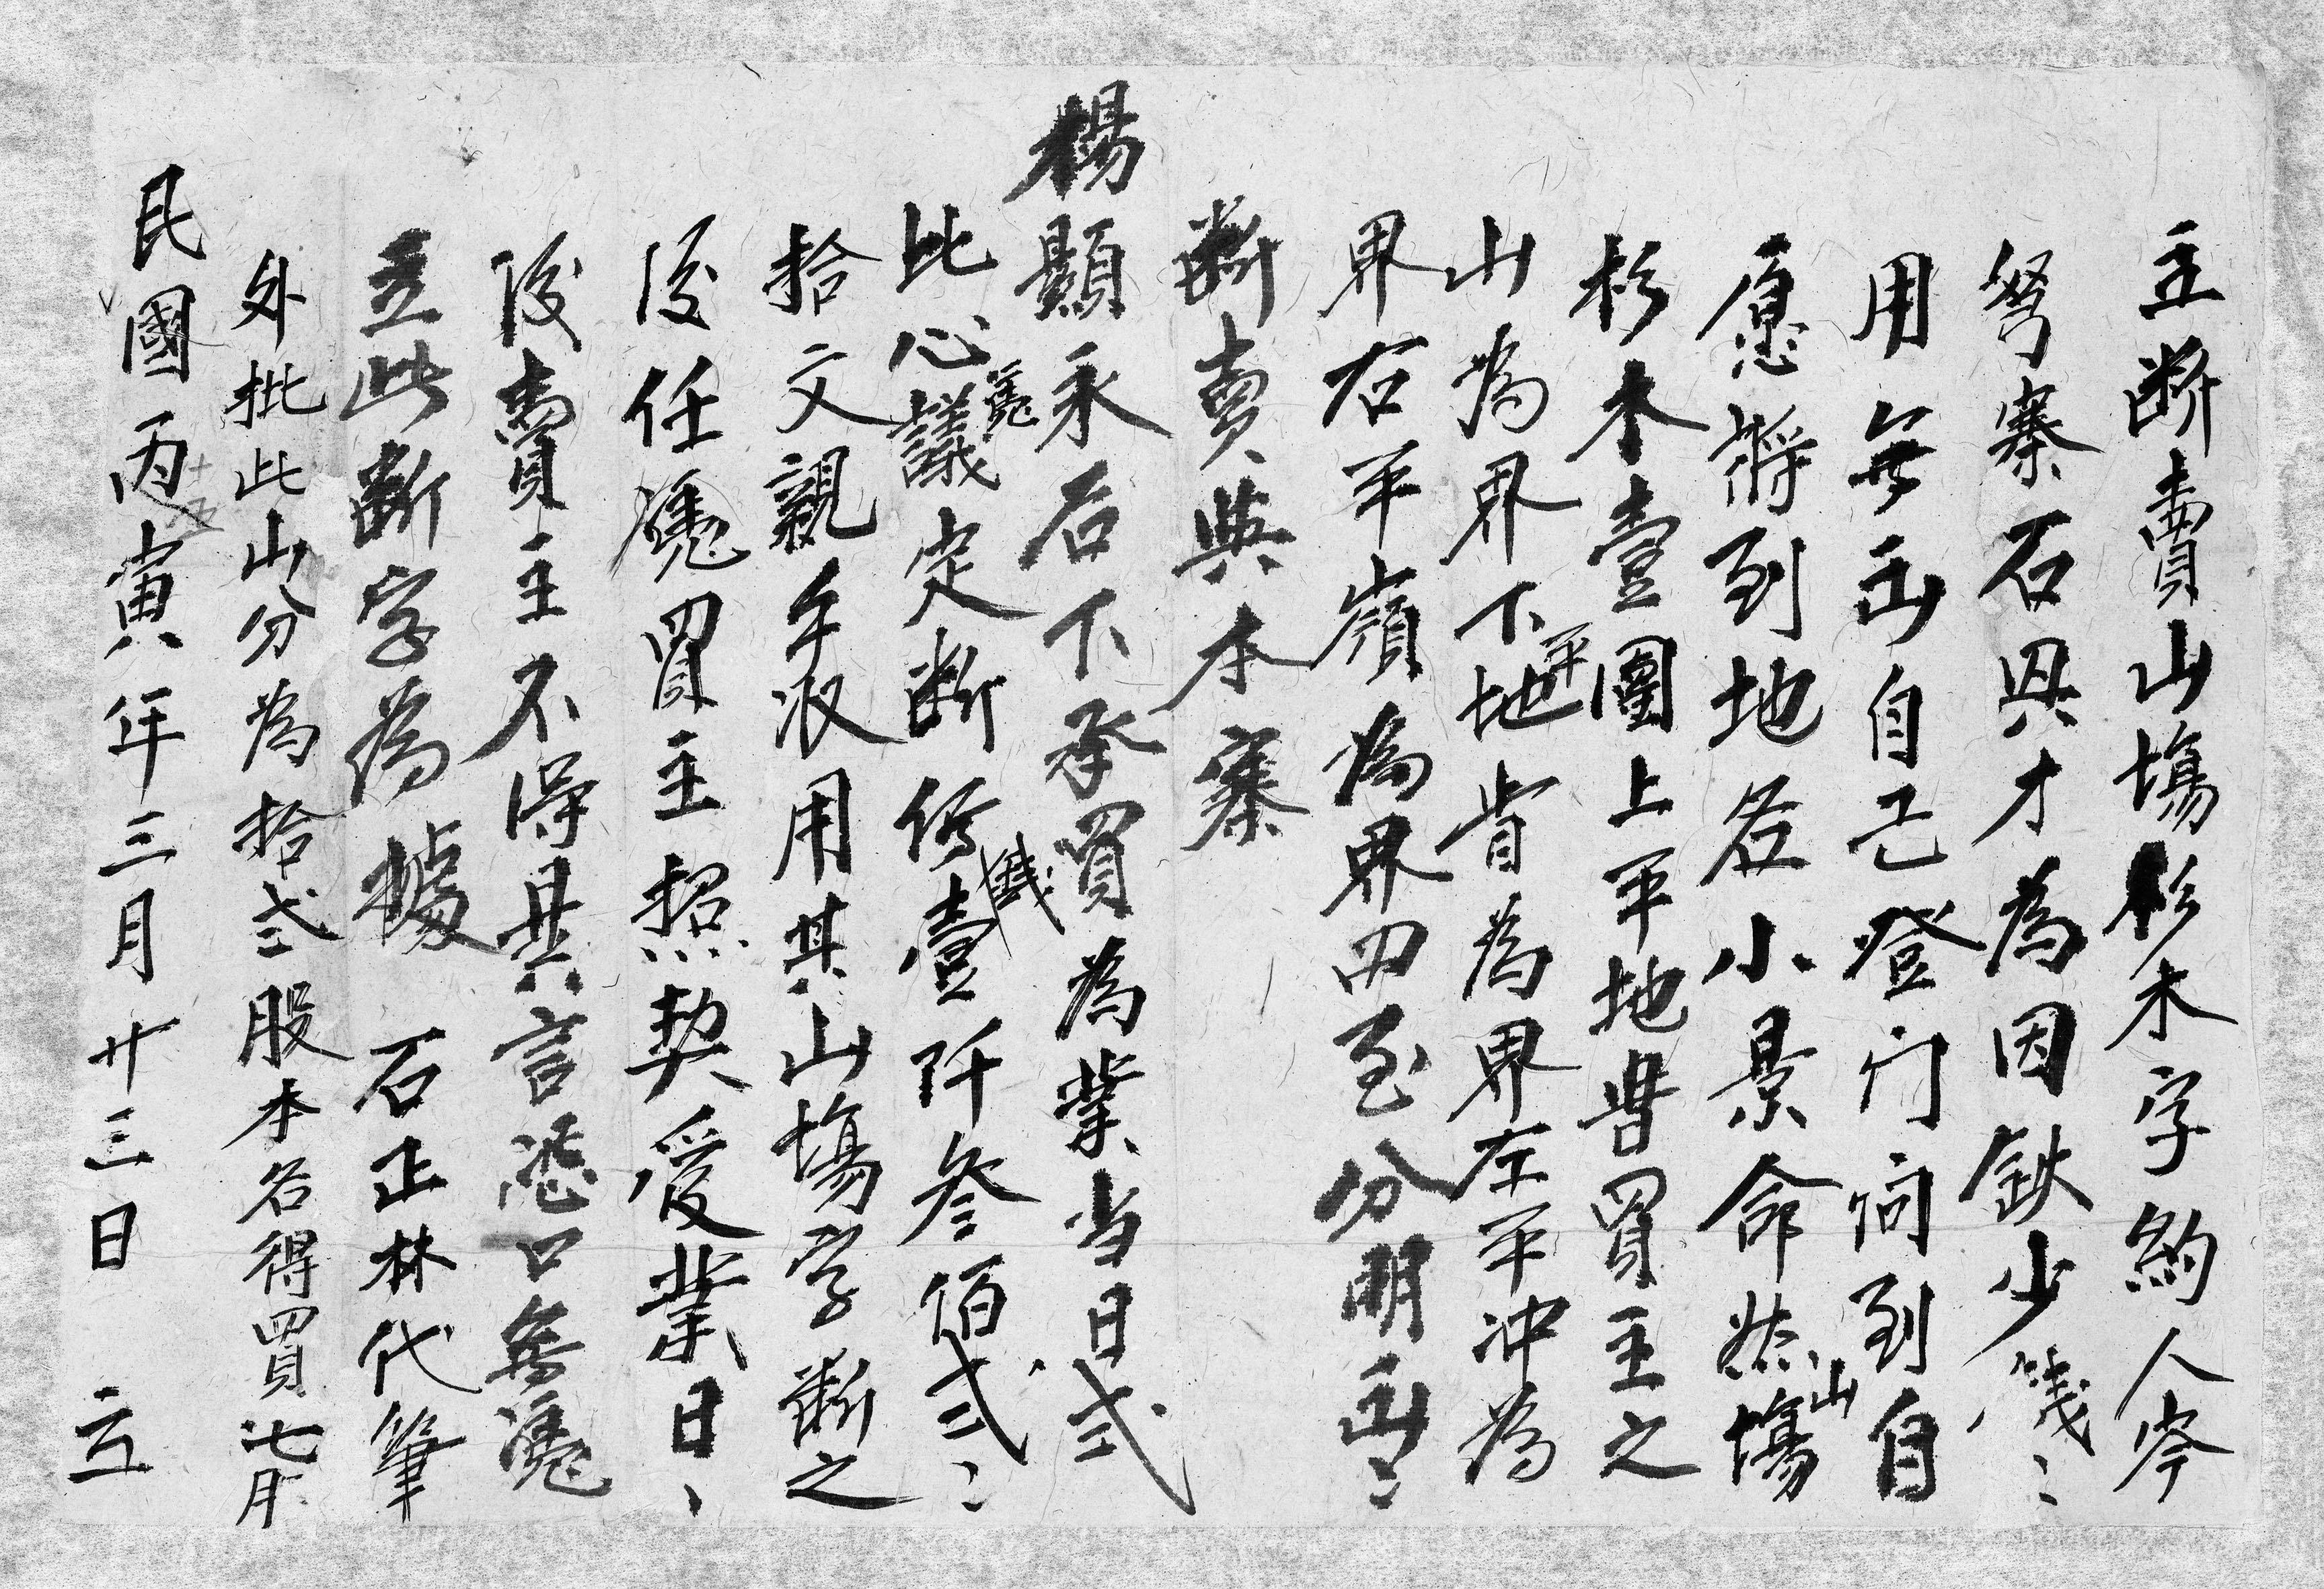 主断賣山塲杉木字約人岑
努寨石具才為因缺少錢〻
用無出自己登门问到自
愿將到地名小景命然山塲
杉木壹團上平地昔買主之
山為界下平地昔為界左平冲為
界右平嶺為界四至分明出〻
断賣與本寨
楊顯永名下承買為業当日弍
比心憑議定断價錢壹阡叁佰弍〻
拾文親手收用其山塲字断之
後任憑買主招契受業日〻
後賣主不得異言恐口無憑
立此断字為據 石正林代筆
外批此山分為拾弍股本名得買七股
民國丙寅年三月廿三日 立